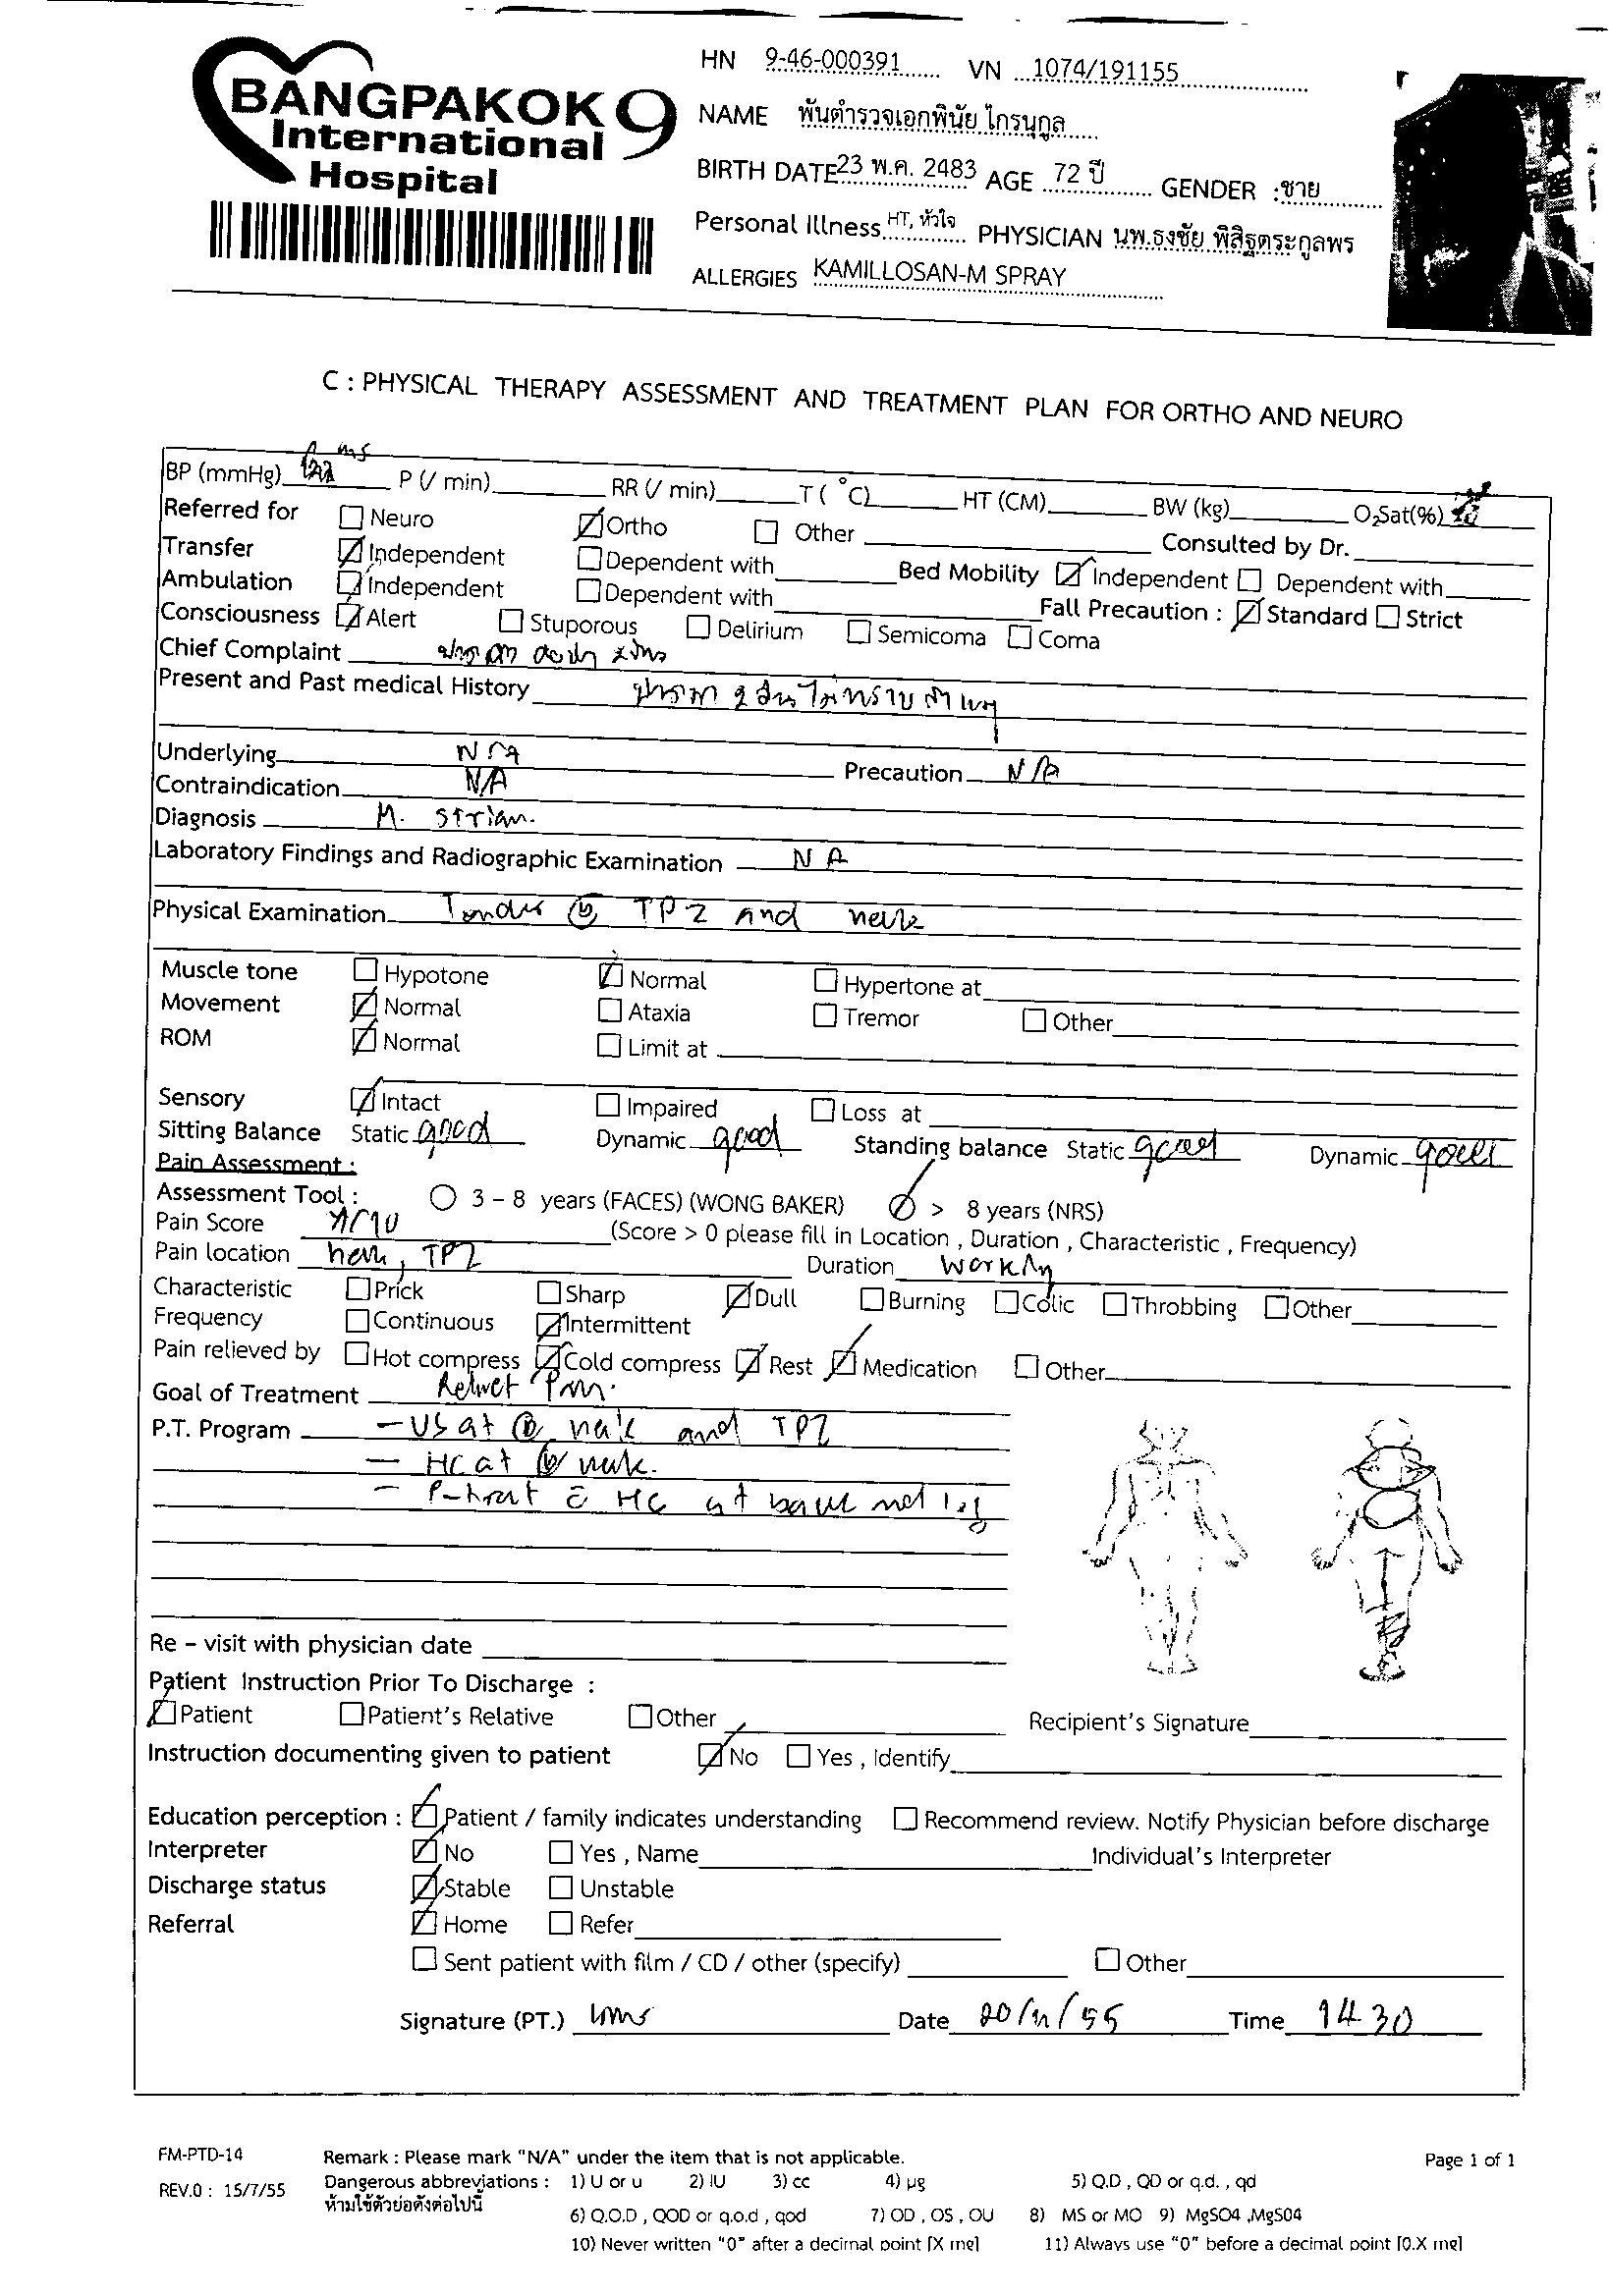 BANGPAKOK 9
International
Hospital
HN 9-46-000391 VN 1074/191155
NAME พันตำรวจเอกพินัย ไกรนุกูล
BIRTH DATE 23 พ.ค. 2483 AGE 72 ปี GENDER :ชาย
Personal Illness HT, หัวใจ PHYSICIAN นพ.ธงชัย พิสิฐตระกูลพร
ALLERGIES KAMILLOSAN-M SPRAY
C : PHYSICAL THERAPY ASSESSMENT AND TREATMENT PLAN FOR ORTHO AND NEURO
BP (mmHg) P (/ min) RR (/ min) T ( °C) HT (CM) BW (kg) O2Sat(%)
Referred for Neuro Ortho Other Consulted by Dr.
Transfer Independent Dependent with Bed Mobility Independent Dependent with
Ambulation Independent Dependent with Fall Precaution : Standard Strict
Consciousness Alert Stuporous Delirium Semicoma Coma
Chief Complaint
Present and Past medical History
Underlying N/A Precaution N/A
Contraindication N/A
Diagnosis M.
Laboratory Findings and Radiographic Examination N A
Physical Examination TPZ and neck
Muscle tone Hypotone Normal Hypertone at
Movement Normal Ataxia Tremor Other
ROM Normal Limit at
Sensory Intact Impaired Loss at
Sitting Balance Static good Dynamic good Standing balance Static good Dynamic good
Pain Assessment :
Assessment Tool : 3 – 8 years (FACES) (WONG BAKER) > 8 years (NRS)
Pain Score (Score > 0 please fill in Location , Duration , Characteristic , Frequency)
Pain location neck, TPZ Duration
Characteristic Prick Sharp Dull Burning Colic Throbbing Other
Frequency Continuous Intermittent
Pain relieved by Hot compress Cold compress Rest Medication Other
Goal of Treatment
P.T. Program – US at neck and TPZ
– HC at neck.
– HC at
Re – visit with physician date
Patient Instruction Prior To Discharge :
Patient Patient's Relative Other Recipient's Signature
Instruction documenting given to patient No Yes , Identify
Education perception : Patient / family indicates understanding Recommend review. Notify Physician before discharge
Interpreter No Yes , Name Individual's Interpreter
Discharge status Stable Unstable
Referral Home Refer
Sent patient with film / CD / other (specify) Other
Signature (PT.) Date 20/11/55 Time 14 30
FM-PTD-14 Remark : Please mark "N/A" under the item that is not applicable. Page 1 of 1
REV.0 : 15/7/55 Dangerous abbreviations : 1) U or u 2) IU 3) cc 4) µg 5) Q.D , QD or q.d. , qd
ห้ามใช้ตัวย่อดังต่อไปนี้ 6) Q.O.D , QOD or q.o.d , qod 7) OD , OS , OU 8) MS or MO 9) MgSO4 ,MgS04
10) Never written "0" after a decimal point [X mg] 11) Always use "0" before a decimal point [0.X mg]